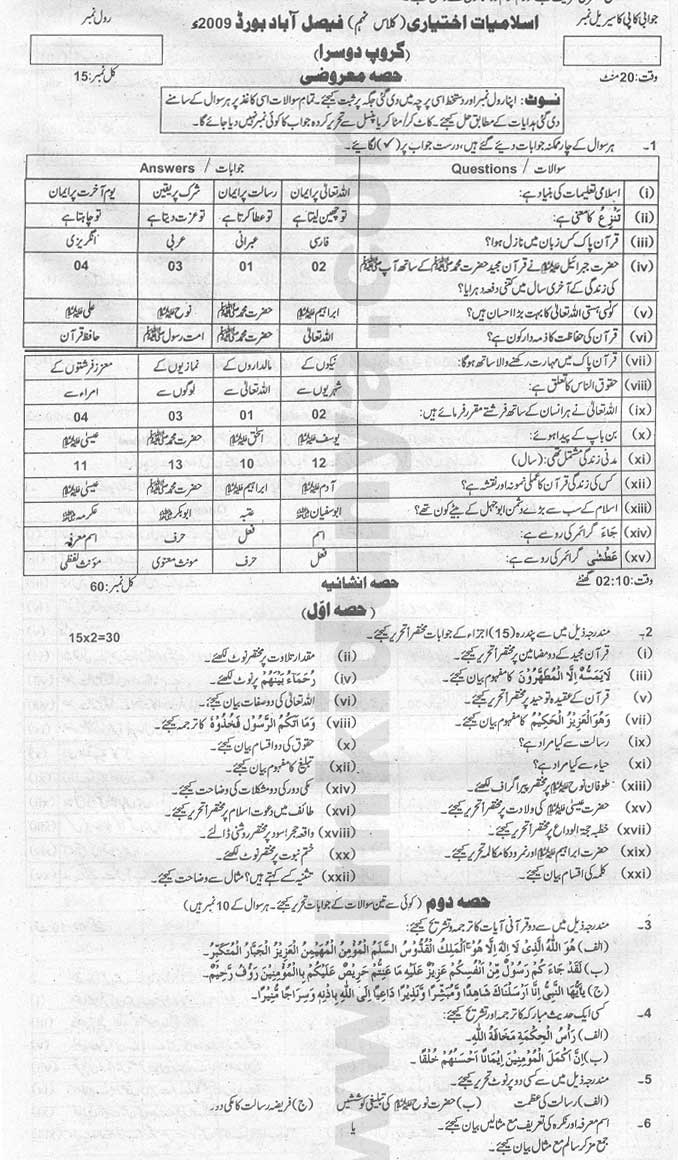 جوابی کاپی کا سیریل نمبر
اسلامیات اختیاری (کلاس نہم) فیصل آباد بورڈ 2009ء
رول نمبر
(گروپ دوسرا)
وقت: 20 منٹ
حصہ معروضی
کل نمبر: 15
نوٹ: اپنا رول نمبر اور دستخط اسی پرچہ میں دی گئی جگہ پر ثبت کیجئے۔ تمام سوالات اسی کاغذ پر ہر سوال کے سامنے
دی گئی ہدایات کے مطابق حل کیجئے۔ کاٹ کر / مٹا کر یا پنسل سے تحریر کردہ جواب کا کوئی نمبر نہیں دیا جائے گا۔
1۔ ہر سوال کے چار ممکنہ جوابات دیئے گئے ہیں، درست جواب پر (✓) لگائیے۔
سوالات / Questions جوابات / Answers
(i) اسلامی تعلیمات کی بنیاد ہے: اللہ تعالیٰ پر ایمان رسالت پر ایمان شرک پر یقین یوم آخرت پر ایمان
(ii) تَنْزِعُ کا معنی ہے: تو چھین لیتا ہے تو عطا کرتا ہے تو عزت دیتا ہے تو چاہتا ہے
(iii) قرآن پاک کس زبان میں نازل ہوا؟ فارسی عبرانی عربی انگریزی
(iv) حضرت جبرائیل علیہ السلام نے قرآن مجید حضرت محمد ﷺ کے ساتھ آپ ﷺ 02 01 03 04
کی زندگی کے آخری سال میں کتنی دفعہ دہرایا؟
(v) کونسی ہستی اللہ تعالیٰ کا بہت بڑا احسان ہیں؟ ابراہیم علیہ السلام حضرت محمد ﷺ نوح علیہ السلام علی
(vi) قرآن کی حفاظت کا ذمہ دار کون ہے؟ اللہ تعالیٰ حضرت محمد ﷺ امت رسول ﷺ حافظ قرآن
(vii) قرآن پاک میں مہارت رکھنے والا ساتھ ہوگا: نیکوں کے مالداروں کے نمازیوں کے معزز فرشتوں کے
(viii) حقوق الناس کا تعلق ہے: شہریوں سے اللہ تعالیٰ سے لوگوں سے امراء سے
(ix) اللہ تعالیٰ نے ہر انسان کے ساتھ فرشتے مقرر فرمائے ہیں: 02 01 03 04
(x) بن باپ کے پیدا ہوئے: یوسف علیہ السلام اسحٰق علیہ السلام حضرت محمد ﷺ عیسیٰ علیہ السلام
(xi) مدنی زندگی مشتمل تھی: (سال) 12 10 13 11
(xii) کس کی زندگی قرآن کا عملی نمونہ اور نقشہ ہے؟ آدم علیہ السلام ابراہیم علیہ السلام حضرت محمد ﷺ عیسیٰ علیہ السلام
(xiii) اسلام کے سب سے بڑے دشمن ابو جہل کے بیٹے کون تھے؟ ابو سفیان عتبہ ابوبکر عکرمہ
(xiv) جَاءَ گرائمر کی رو سے ہے: اسم فعل حرف اسم معرفہ
(xv) عَطْشٰی گرائمر کی رو سے ہے: فعل حرف مونث معنوی مؤنث لفظی
وقت: 02:10 گھنٹے
حصہ انشائیہ
کل نمبر: 60
(حصہ اوّل)
2۔ مندرجہ ذیل میں سے پندرہ (15) اجزاء کے جوابات مختصراً تحریر کیجئے۔ 15x2=30
(i) قرآن مجید کے دو مضامین پر مختصراً تحریر کیجئے۔ (ii) مقدار تلاوت پر مختصر نوٹ لکھئے۔
(iii) لَایَمَسُّہٗ اِلَّا الْمُطَھَّرُوْنَ کا مفہوم بیان کیجئے۔ (iv) رُحَمَاءُ بَیْنَھُمْ پر نوٹ لکھئے۔
(v) قرآن کے عقیدہ توحید پر مختصراً تحریر کیجئے۔ (vi) اللہ تعالیٰ کی دو صفات بیان کیجئے۔
(vii) وَھُوَ الْعَزِیْزُ الْحَکِیْمُ کا مفہوم بیان کیجئے۔ (viii) وَمَا اٰتٰکُمُ الرَّسُوْلُ فَخُذُوْہُ کا ترجمہ کیجئے۔
(ix) رسالت سے کیا مراد ہے؟ (x) حقوق کی دو اقسام بیان کیجئے۔
(xi) حیاء سے کیا مراد ہے؟ (xii) تبلیغ کا مفہوم بیان کیجئے۔
(xiii) طوفان نوح علیہ السلام پر مختصر پیراگراف لکھئے۔ (xiv) مکی دور کی دو مشکلات کی وضاحت کیجئے۔
(xv) حضرت عیسیٰ علیہ السلام کی ولادت پر مختصراً تحریر کیجئے۔ (xvi) طائف میں دعوت اسلام پر مختصراً تحریر کیجئے۔
(xvii) خطبہ حجۃ الوداع پر مختصراً تحریر کیجئے۔ (xviii) واقعہ حجر اسود پر مختصر روشنی ڈالئے۔
(xix) حضرت ابراہیم علیہ السلام اور نمرود کا مکالمہ تحریر کیجئے۔ (xx) ختم نبوت پر مختصر نوٹ لکھئے۔
(xxi) کلمہ کی اقسام بیان کیجئے۔ (xxii) تثنیہ کسے کہتے ہیں؟ مثال سے وضاحت کیجئے۔
حصہ دوم (کوئی سے تین سوالات کے جوابات تحریر کیجئے۔ ہر سوال کے 10 نمبر ہیں)
3۔ مندرجہ ذیل میں سے دو قرآنی آیات کا ترجمہ و تشریح کیجئے:
(الف) ھُوَ اللّٰہُ الَّذِیْ لَا اِلٰہَ اِلَّا ھُوَ ۚ اَلْمَلِکُ الْقُدُّوْسُ السَّلٰمُ الْمُؤْمِنُ الْمُھَیْمِنُ الْعَزِیْزُ الْجَبَّارُ الْمُتَکَبِّرُ۔
(ب) لَقَدْ جَاءَ کُمْ رَسُوْلٌ مِّنْ اَنْفُسِکُمْ عَزِیْزٌ عَلَیْہِ مَا عَنِتُّمْ حَرِیْصٌ عَلَیْکُمْ بِالْمُؤْمِنِیْنَ رَؤُفٌ رَّحِیْمٌ۔
(ج) یٰاَیُّھَا النَّبِیُّ اِنَّا اَرْسَلْنٰکَ شَاھِدًا وَّمُبَشِّرًا وَّنَذِیْرًا دَاعِیًا اِلَی اللّٰہِ بِاِذْنِہٖ وَسِرَاجًا مُّنِیْرًا۔
4۔ کسی ایک حدیث مبارکہ کا ترجمہ اور تشریح کیجئے:
(الف) رَأْسُ الْحِکْمَۃِ مَخَافَۃُ اللّٰہِ۔
(ب) اِنَّ اَکْمَلَ الْمُؤْمِنِیْنَ اِیْمَانًا اَحْسَنُھُمْ خُلْقًا۔
5۔ مندرجہ ذیل میں سے کسی دو پر نوٹ تحریر کیجئے۔
(الف) رسالت کی عظمت (ب) حضرت نوح علیہ السلام کی تبلیغی کوششیں (ج) فریضہ رسالت کا مکی دور۔
6۔ اسم معرفہ اور نکرہ کی تعریف مع مثالیں بیان کیجئے۔
یا
جمع مذکر سالم مع مثال بیان کیجئے۔